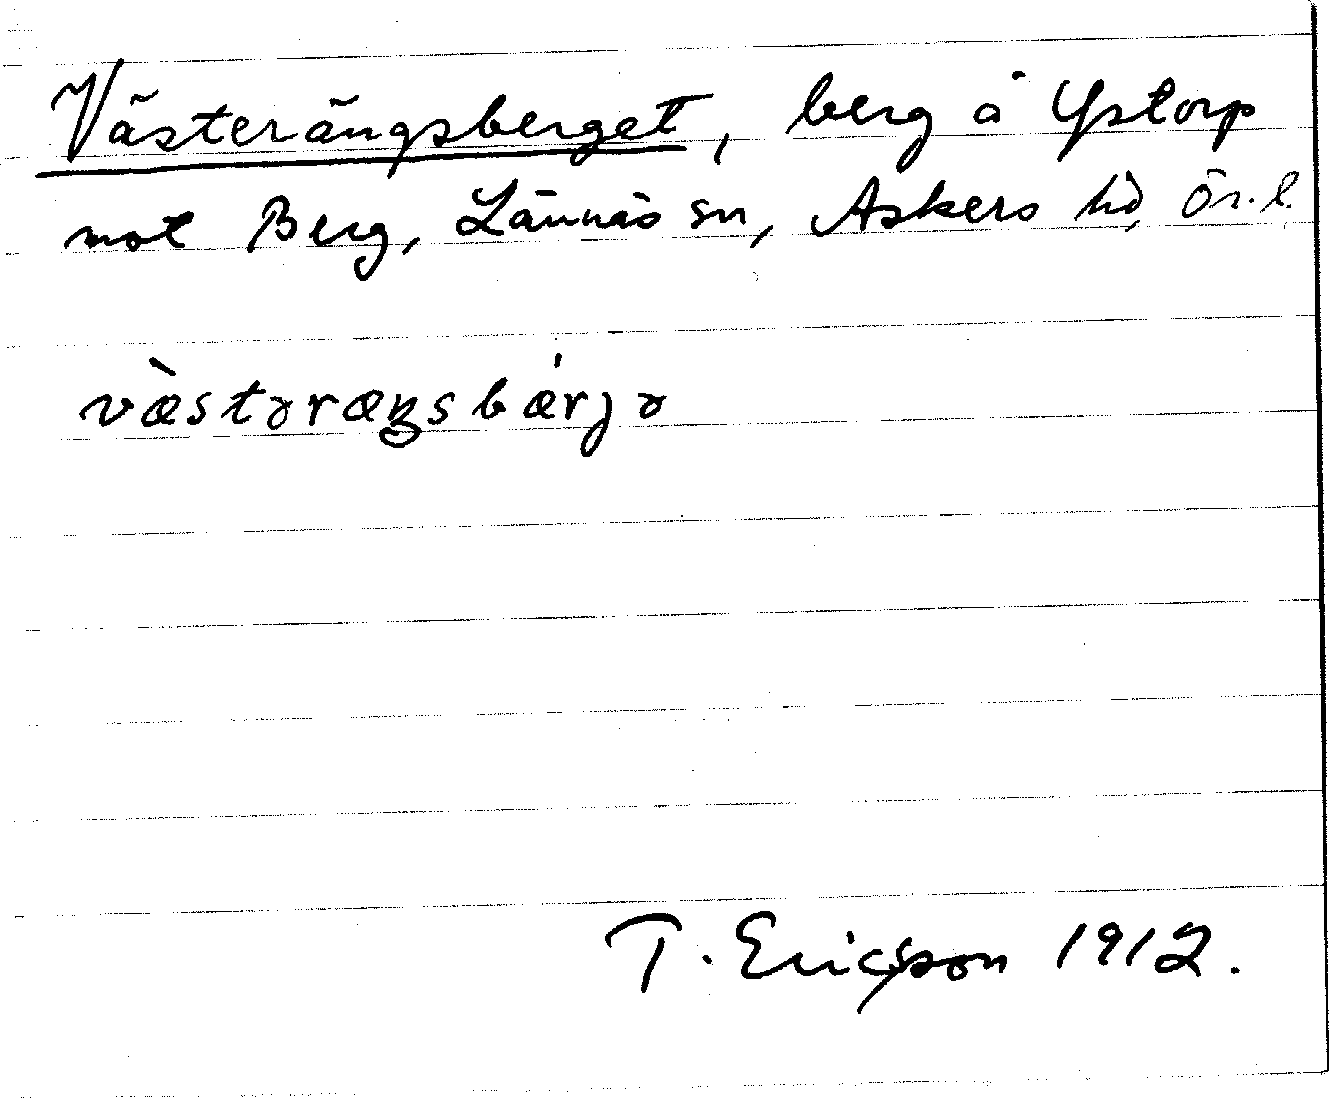 Västerängsberget, berg å Ystorp
mot Berg, Lännäs sn, Askers hd, Ör. l.
væ̀stəræŋsbærjə
T. Ericsson 1912.